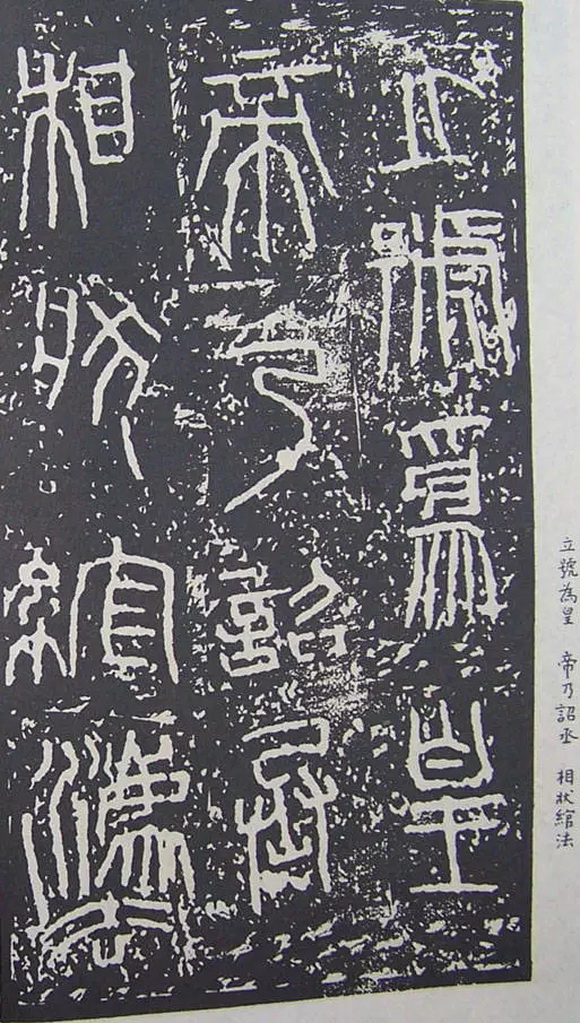 立號爲皇
帝乃詔丞
相狀綰灋
立號為皇 帝乃詔丞 相狀綰法